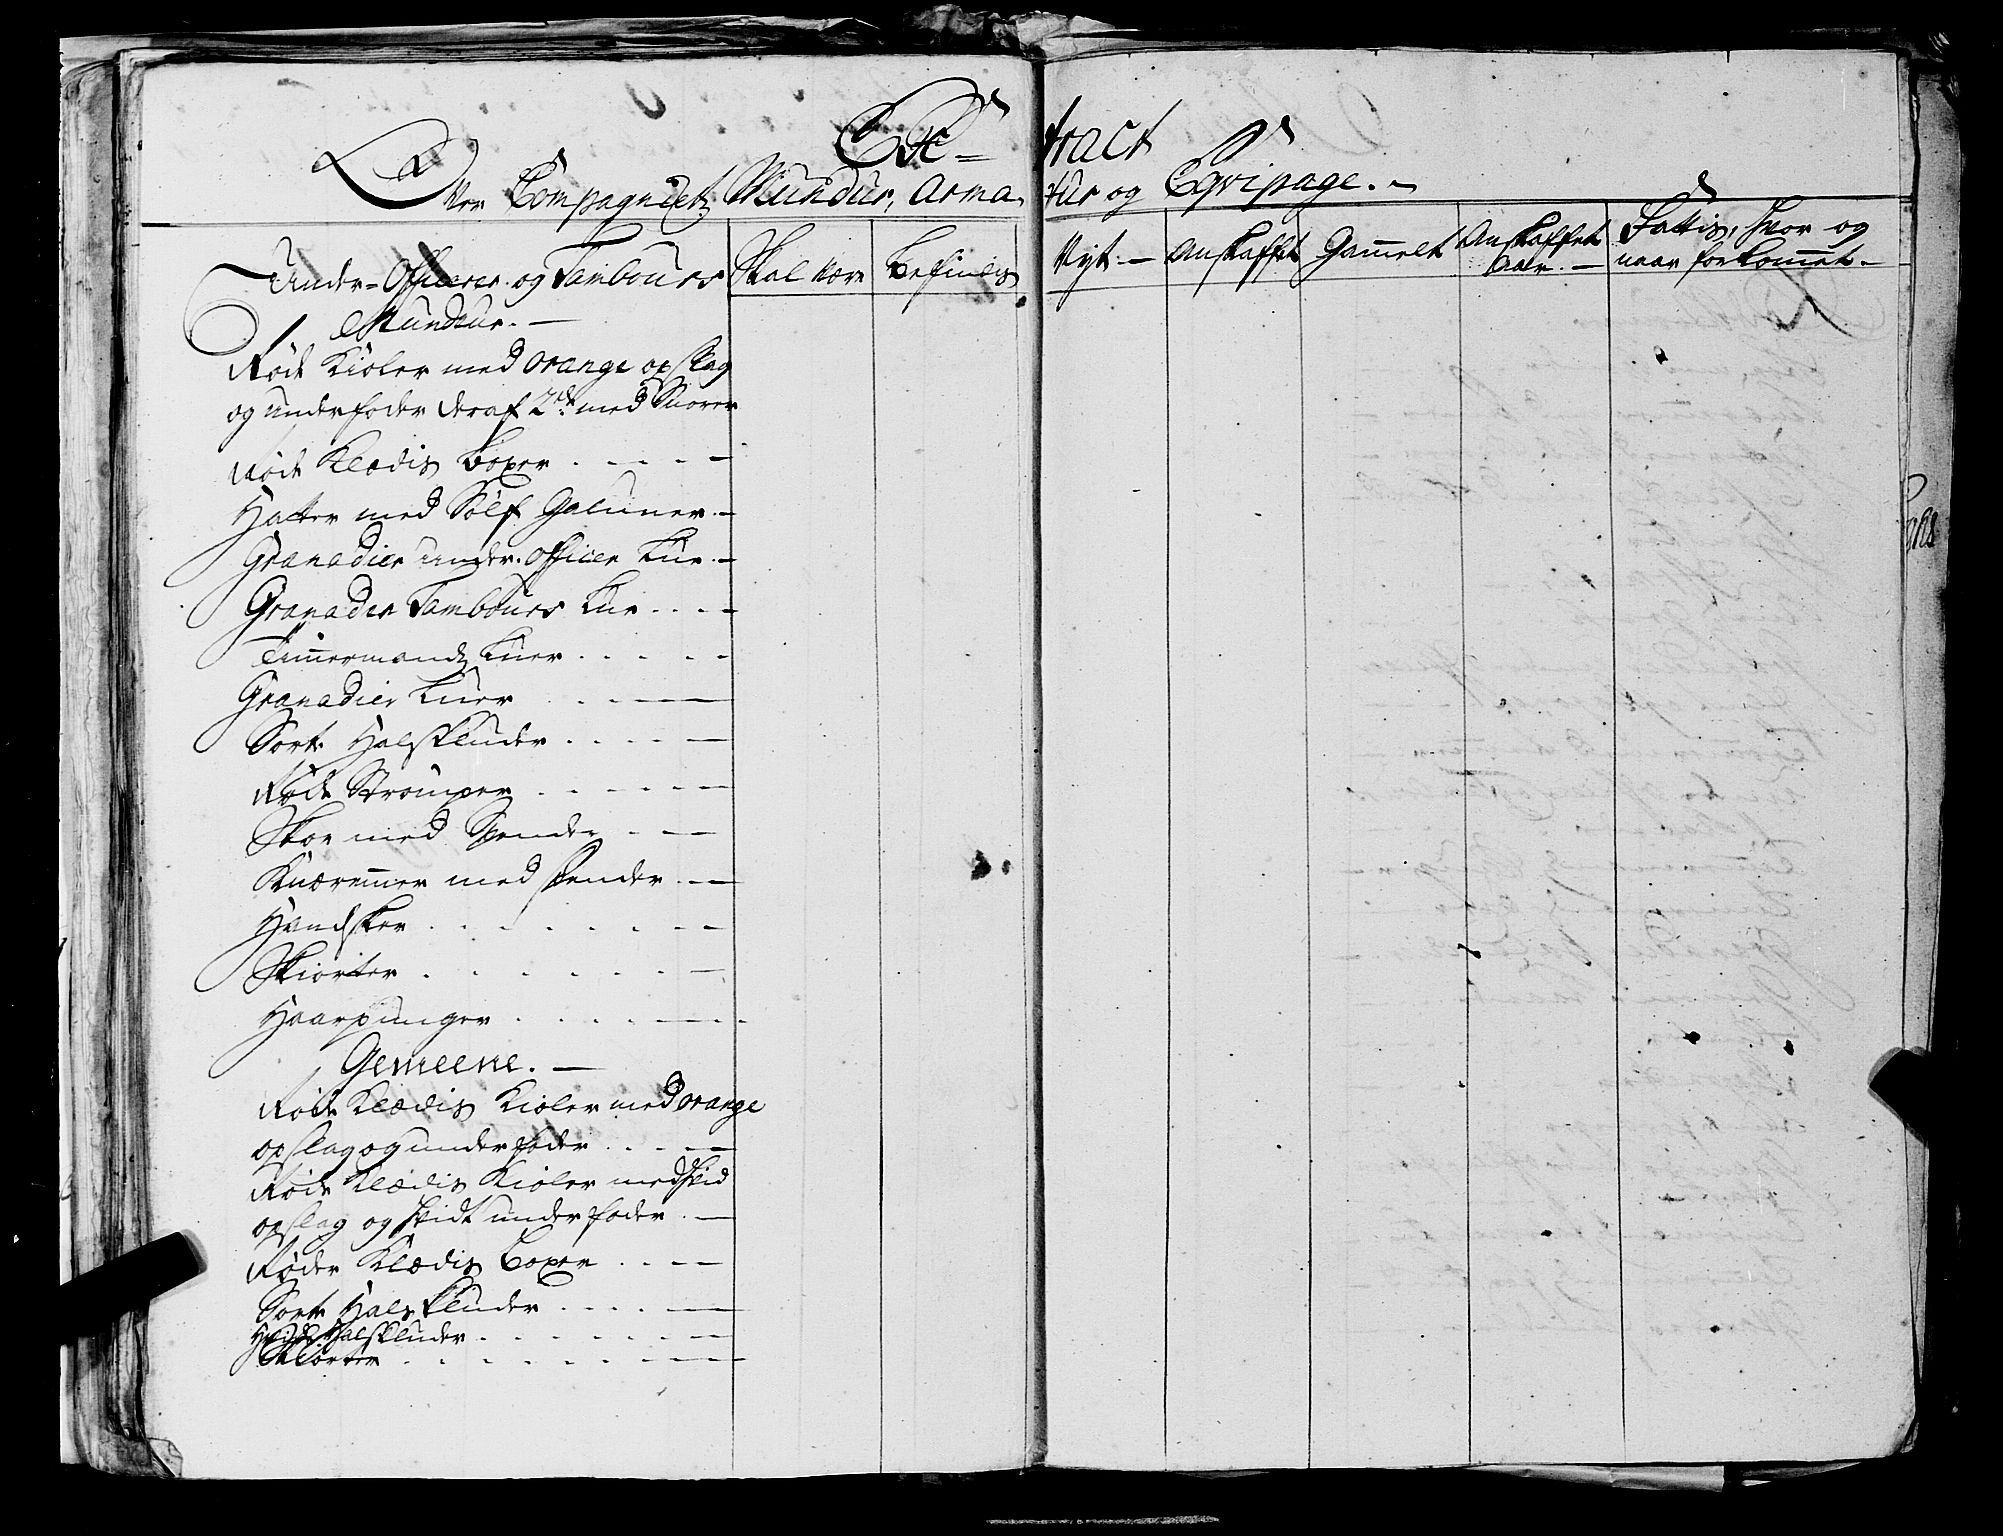 Extract
Over Compagniets Mundur, Arma-tur og Eqvipage. -
Under-Officerer og Tambours Mundur. -
Skal være
Befindes
Nyt. -
Anskaffet
Gam̄elt
Anskaffet Aar. -
Fattis, hvor og naar forkom̄et. -
Røde Kioler med orange opslag
og underfoder deraf 2de med Snorer
Røde Klædis Boxer . . . . -
Hatter med Sølf Galuner. -
Granadier Under-Officer Luer. -
Granader Tambours Lue . . . -
Tim̄ermands Luer . . . . -
Granadier Luer . . . -
Sorte Halskluder . . . . -
Røde Strømper . . . . -
Skoe med Spender . . -
Knærem̄er med spender . -
Handsker . . . . . . . -
Skiorter . . . . . . . -
Haarpunger . . . . . -
Gemeene. -
Røde Klædis Kioler med orange
opslag og underfoder . . . -
Røde Klædis Kioler med
opslag og underfoder . -
Røde Klædis Boxer . . . -
Sorte Halskluder . . . . -
Hvide Halskluder . . . . . . -
Skiorter . . . . . . . -